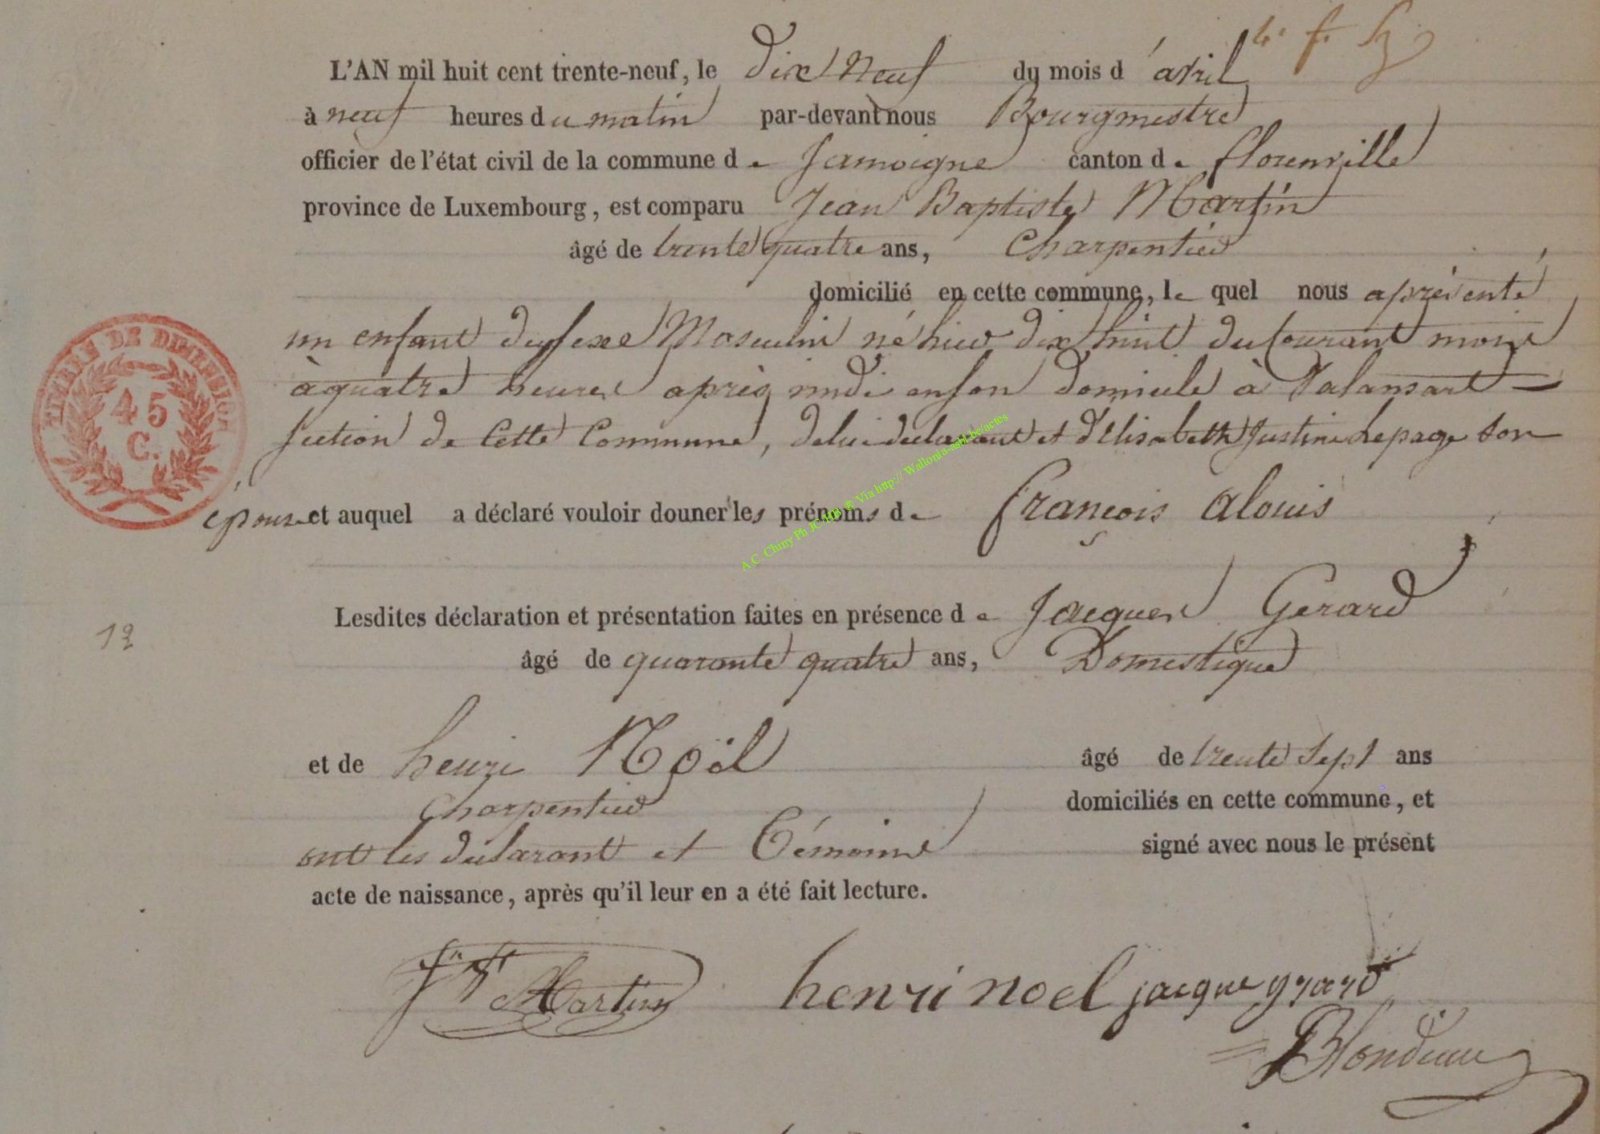 L'AN mil huit cent trente-neuf, le dix Neuf du mois d'avril
à neuf heures du matin par-devant nous Bourgmestre
officier de l'état civil de la commune de Jamoigne canton de florenville
province de Luxembourg, est comparu Jean Baptiste Martin
âgé de trente quatre ans, Charpentier
domicilié en cette commune, le quel nous a présenté
un enfant du sexe Masculin né hier dix huit du Courant mois
à quatre heures après midi en son domicile à Valansart
section de Cette Commune, de lui déclarant et d'Elisabeth Justine Lepage son
épouse et auquel a déclaré vouloir donner les prénoms de françois alouis
Lesdites déclaration et présentation faites en présence de Jacques Gerard
âgé de quarante quatre ans, Domestique
et de henri Noël âgé de trente sept ans
Charpentier domiciliés en cette commune, et
ont les déclarant et Témoins signé avec nous le présent
acte de naissance, après qu'il leur en a été fait lecture.
Jn Bte Martin henri noel jacque grard
Blondeau
TIMBRE DE DIMENSION
45
C.
12